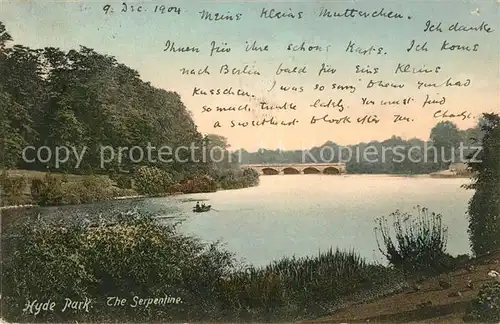 9 Dec. 1904 Meins Kleins Mutterchen.
Ich danke
Ihnen für ihre schons Karts. Ich Koms
nach Berlin bald für Eins Kleins
Kusschen. I was so sorry
had
so much lately. You must find
a sweetheart to look after you.
copyphotoservice
Hyde Park. The Serpentine.